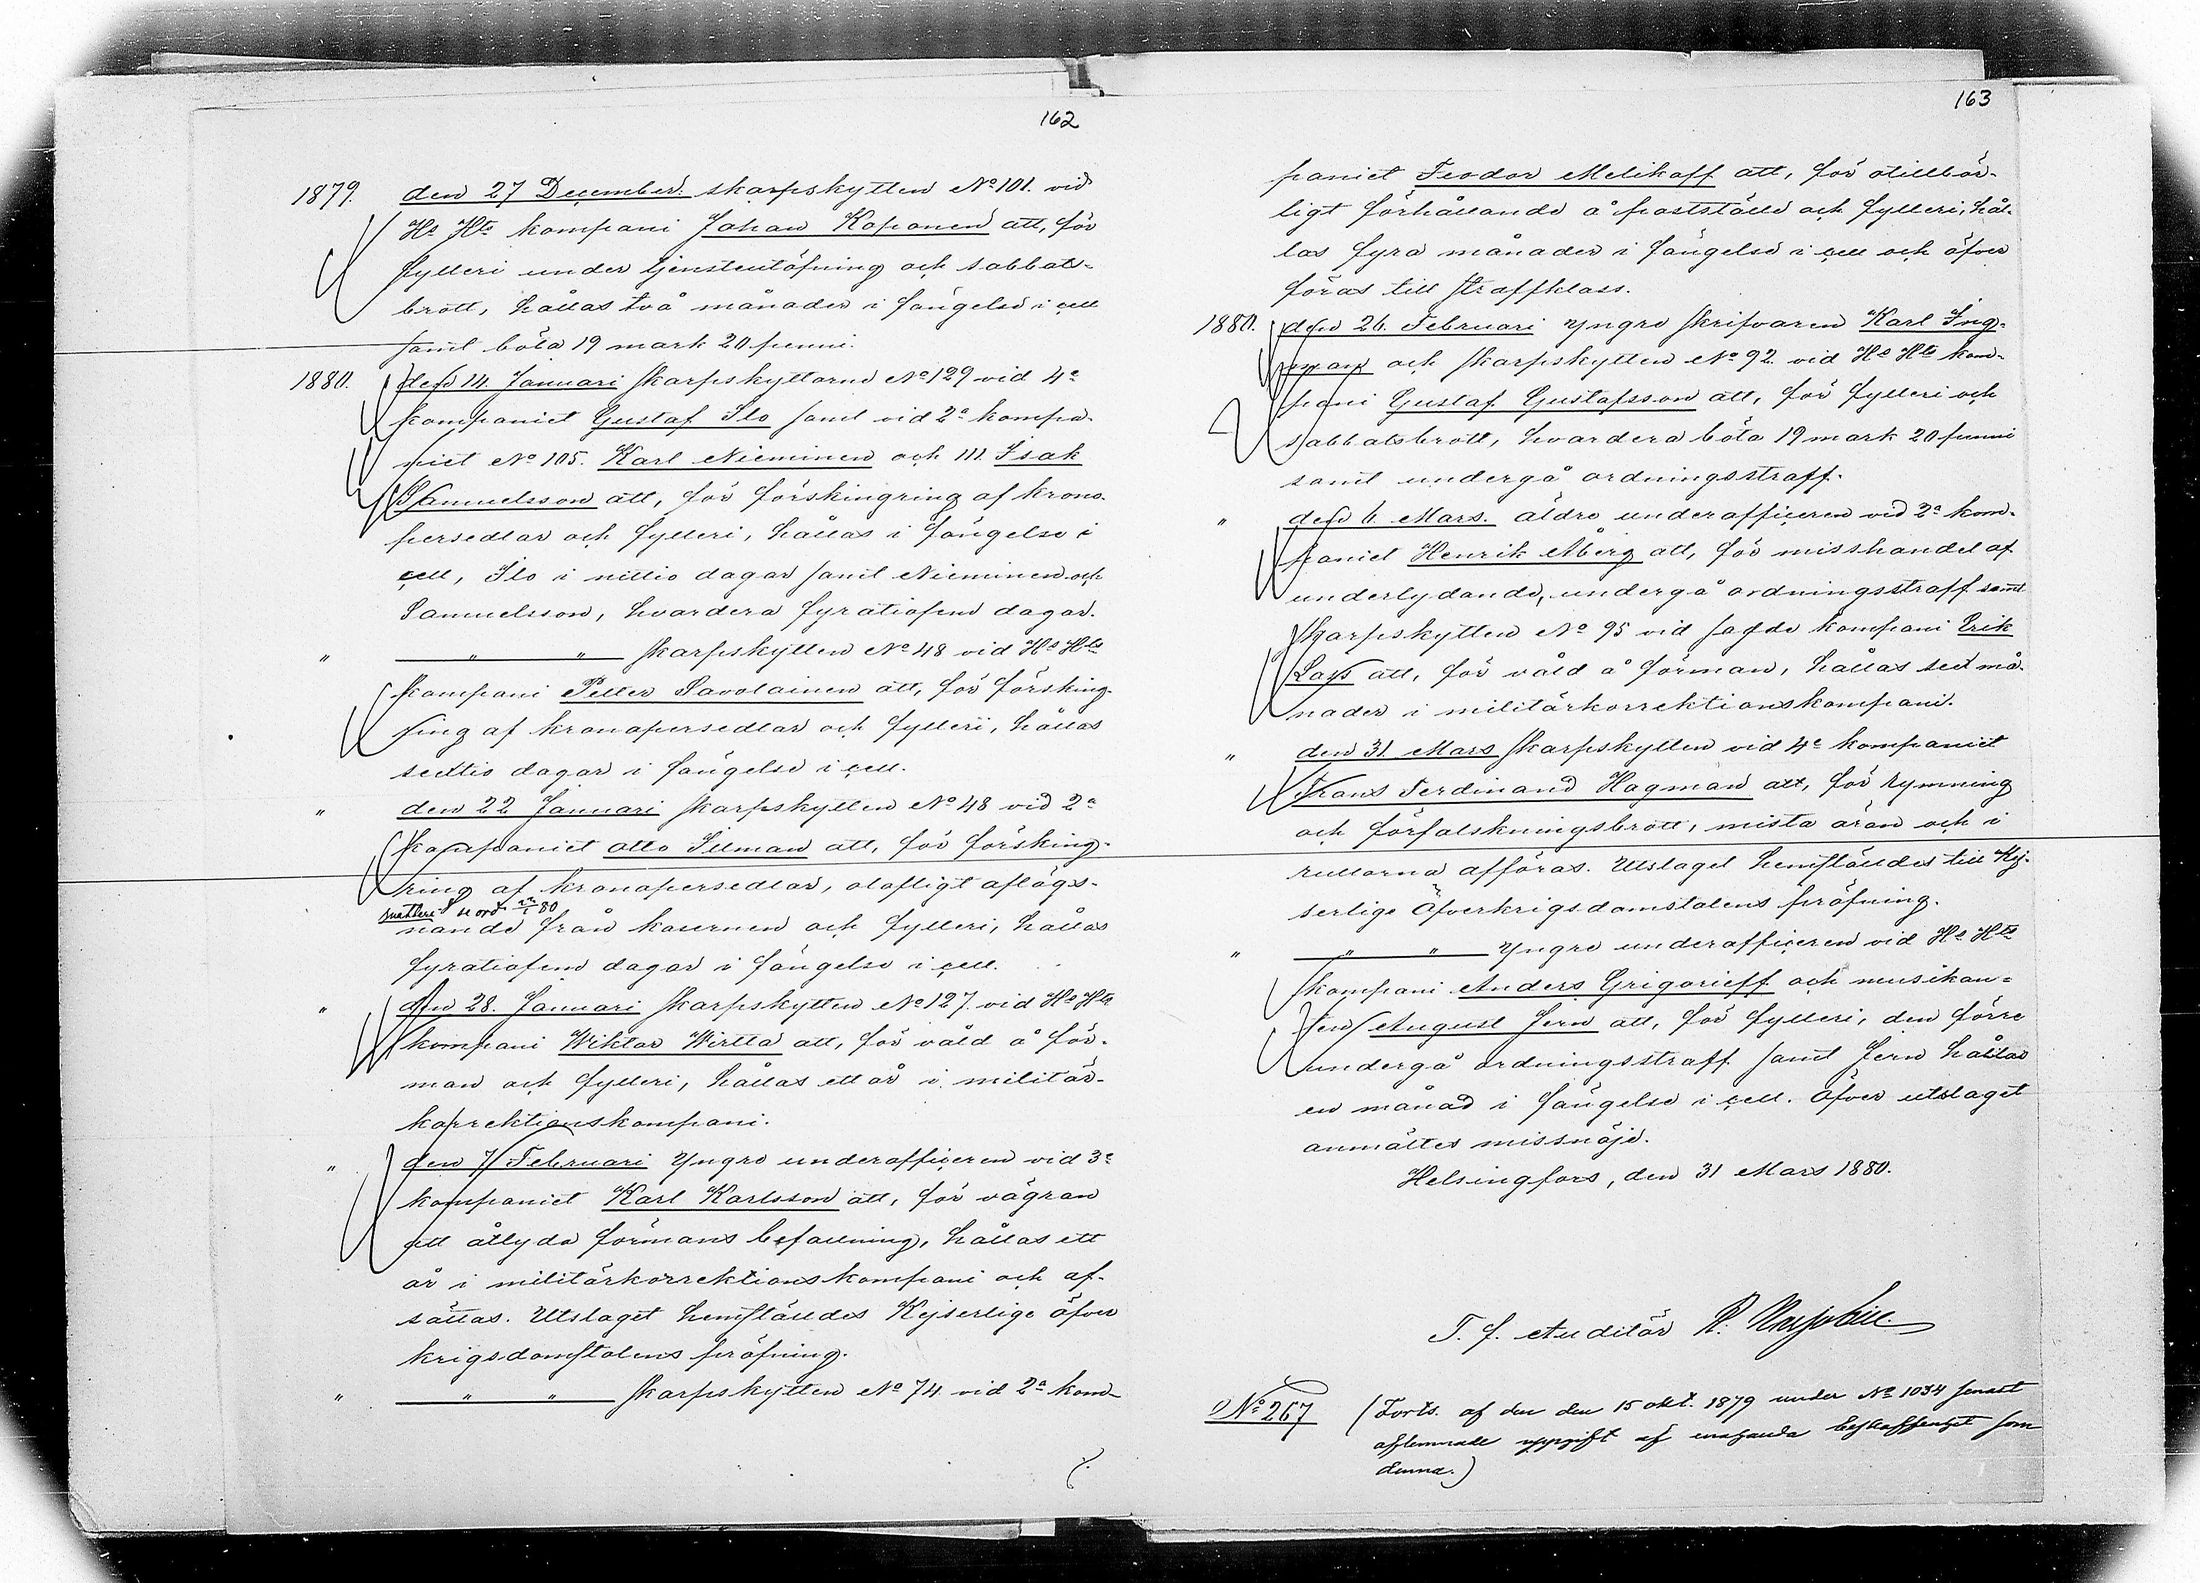 162
1879. den 27 December. skarpskytten No 101. vid
Hs Hts kompani Johan Koponen att, för
fylleri under tjensteutöfning och sabbats-
brott, hållas två månader i fängelse i cell
samt böta 19 mark 20 penni.
1880. den 14. Januari skarpskyttarne No 129 vid 4e
kompaniet Gustaf Ilo samt vid 2a kompa-
niet No 105. Karl Nieminen och 111. Isak
Samuelsson att, för förskingring af krono-
persedlar och fylleri, hållas i fängelse i
cell, Ilo i nittio dagar samt Nieminen och
Samuelsson, hvardera fyratiofem dagar.
" " " skarpskytten No 48 vid Hs Hts
kompani Petter Savolainen att, för försking-
ring af kronopersedlar och fylleri, hållas
sextio dagar i fängelse i cell.
" den 22 Januari skarpskytten No 48 vid 2a
kompaniet Otto Illman att, för försking-
ring af kronopersedlar, olofligt aflägs-
nande från kasernen och fylleri, hållas
fyratiofem dagar i fängelse i cell.
" den 28. Januari skarpskytten No 127. vid Hs Hts
kompani Wiktor Wirtta att, för våld å för-
man och fylleri, hållas ett år i militär-
korrektionskompani.
" den 7 Februari yngre underofficeren vid 3e
kompaniet Karl Karlsson att, för vägran
att åtlyda förmans befallning, hållas ett
år i militärkorrektionskompani och af-
sättas. Utslaget hemställdes Kejserlige öfver
krigsdomstolens pröfning.
" " " skarpskytten No 74 vid 2a kom-
163
paniet Feodor Melikoff att, för otillbör-
ligt förhållande å postställe och fylleri, hål-
las fyra månader i fängelse i cell och öfver
föras till straffklass.
1880. den 26. Februari yngre skrifvaren Karl Ing-
man och skarpskytten No 92. vid Hs Hts kom-
pani Gustaf Gustafsson att, för fylleri och
sabbatsbrott, hvardera böta 19 mark 20 penni
samt undergå ordningsstraff.
" den 6 Mars. äldre underofficeren vid 2a kom-
paniet Henrik Åberg att, för misshandel af
underlydande, undergå ordningsstraff samt
skarpskytten No 95 vid sagde kompani Erik
att, för våld å förman, hållas sex må-
nader i militärkorrektionskompani.
" den 31 Mars skarpskytten vid 4e kompaniet
Frans Ferdinand Hagman att, för rymning
och förfalskningsbrott, mista äran och i
rullorna afföras. Utslaget hemställdes till Kej-
serlige Öfverkrigsdomstolens pröfning.
" " " yngre underofficeren vid Hs Hts
kompani Anders Grigorieff och musikan-
ten August Jern att, för fylleri, den förre
undergå ordningsstraff samt Jern hållas
en månad i fängelse i cell. Öfver utslaget
anmältes missnöje.
Helsingfors, den 31 Mars 1880.
T. f. Auditör R.
No 267 (Forts. af den den 15 okt. 1879 under No 1034 senast
aflemnade uppgift af enahanda beskaffenhet som
denna.)